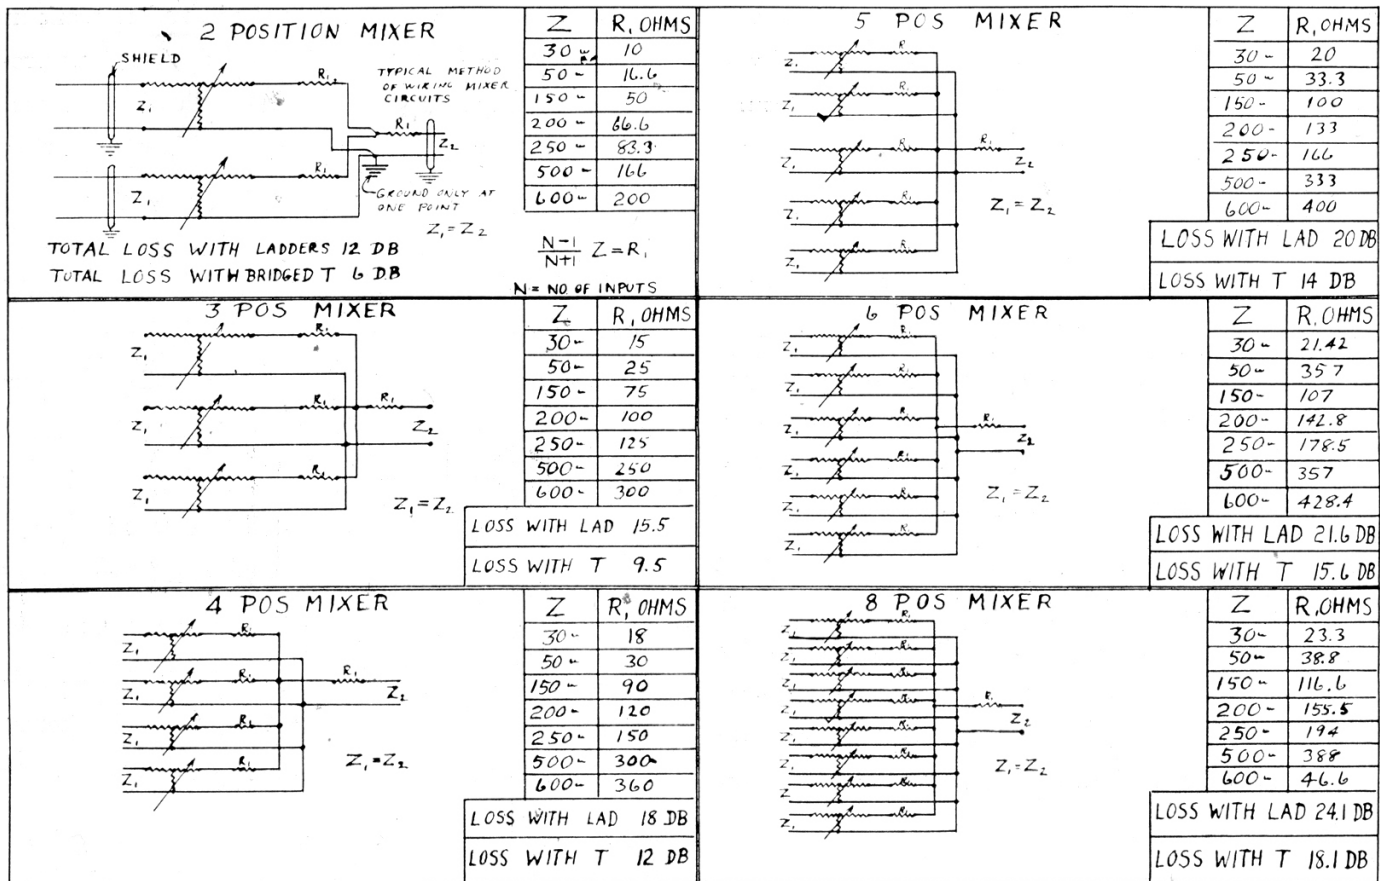 2 POSITION MIXER
SHIELD
R₁₂
TYPICAL METHOD
OF WIRING MIXER
CIRCUITS
Z₁
R₁
Z₂
R₁
Z₁
GROUND ONLY AT
ONE POINT
Z₁=Z₂
TOTAL LOSS WITH LADDERS 12 DB
TOTAL LOSS WITH BRIDGED T 6 DB
Z R, OHMS
30 10
50 - 16.6
150 - 50
200 - 66.6
250 - 83.3
500 - 166
600 - 200
N-1
N+1 Z = R₁
N = NO OF INPUTS
5 POS MIXER
R₁
Z₁
R₁
Z₁
R₁
R₁
Z₁
Z₂
R₁
Z₁
R₁
Z₁
Z₁=Z₂
Z R, OHMS
30 - 20
50 - 33.3
150 - 100
200 - 133
250 - 166
500 - 333
600 - 400
LOSS WITH LAD 20 DB
LOSS WITH T 14 DB
3 POS MIXER
R₁
Z₁
R₁
R₁
Z₁
Z₂
R₁
Z₁
Z₁=Z₂
Z R, OHMS
30 - 15
50 - 25
150 - 75
200 - 100
250 - 125
500 - 250
600 - 300
LOSS WITH LAD 15.5
LOSS WITH T 9.5
6 POS MIXER
R₁
Z₁
R₁
Z₁
R₁
R₁
Z₁
Z₂
R₁
Z₁
R₁
Z₁
R₁
Z₁
Z₁=Z₂
Z R, OHMS
30 - 21.42
50 - 35 7
150 - 107
200 - 142.8
250 - 178.5
500 - 357
600 - 428.4
LOSS WITH LAD 21.6 DB
LOSS WITH T 15.6 DB
4 POS MIXER
R₁
Z₁
R₁
R₁
Z₁
Z₂
R₁
Z₁
R₁
Z₁
Z₁=Z₂
Z R, OHMS
30 - 18
50 - 30
150 - 90
200 - 120
250 - 150
500 - 300
600 - 360
LOSS WITH LAD 18 DB
LOSS WITH T 12 DB
8 POS MIXER
R₁
Z₁
R₁
Z₁
R₁
Z₁
R₁
R₁
Z₁
Z₂
R₁
Z₁
R₁
Z₁
R₁
Z₁
R₁
Z₁
Z₁=Z₂
Z R, OHMS
30 - 23.3
50 - 38.8
150 - 116.6
200 - 155.5
250 - 194
500 - 388
600 - 46.6
LOSS WITH LAD 24.1 DB
LOSS WITH T 18.1 DB